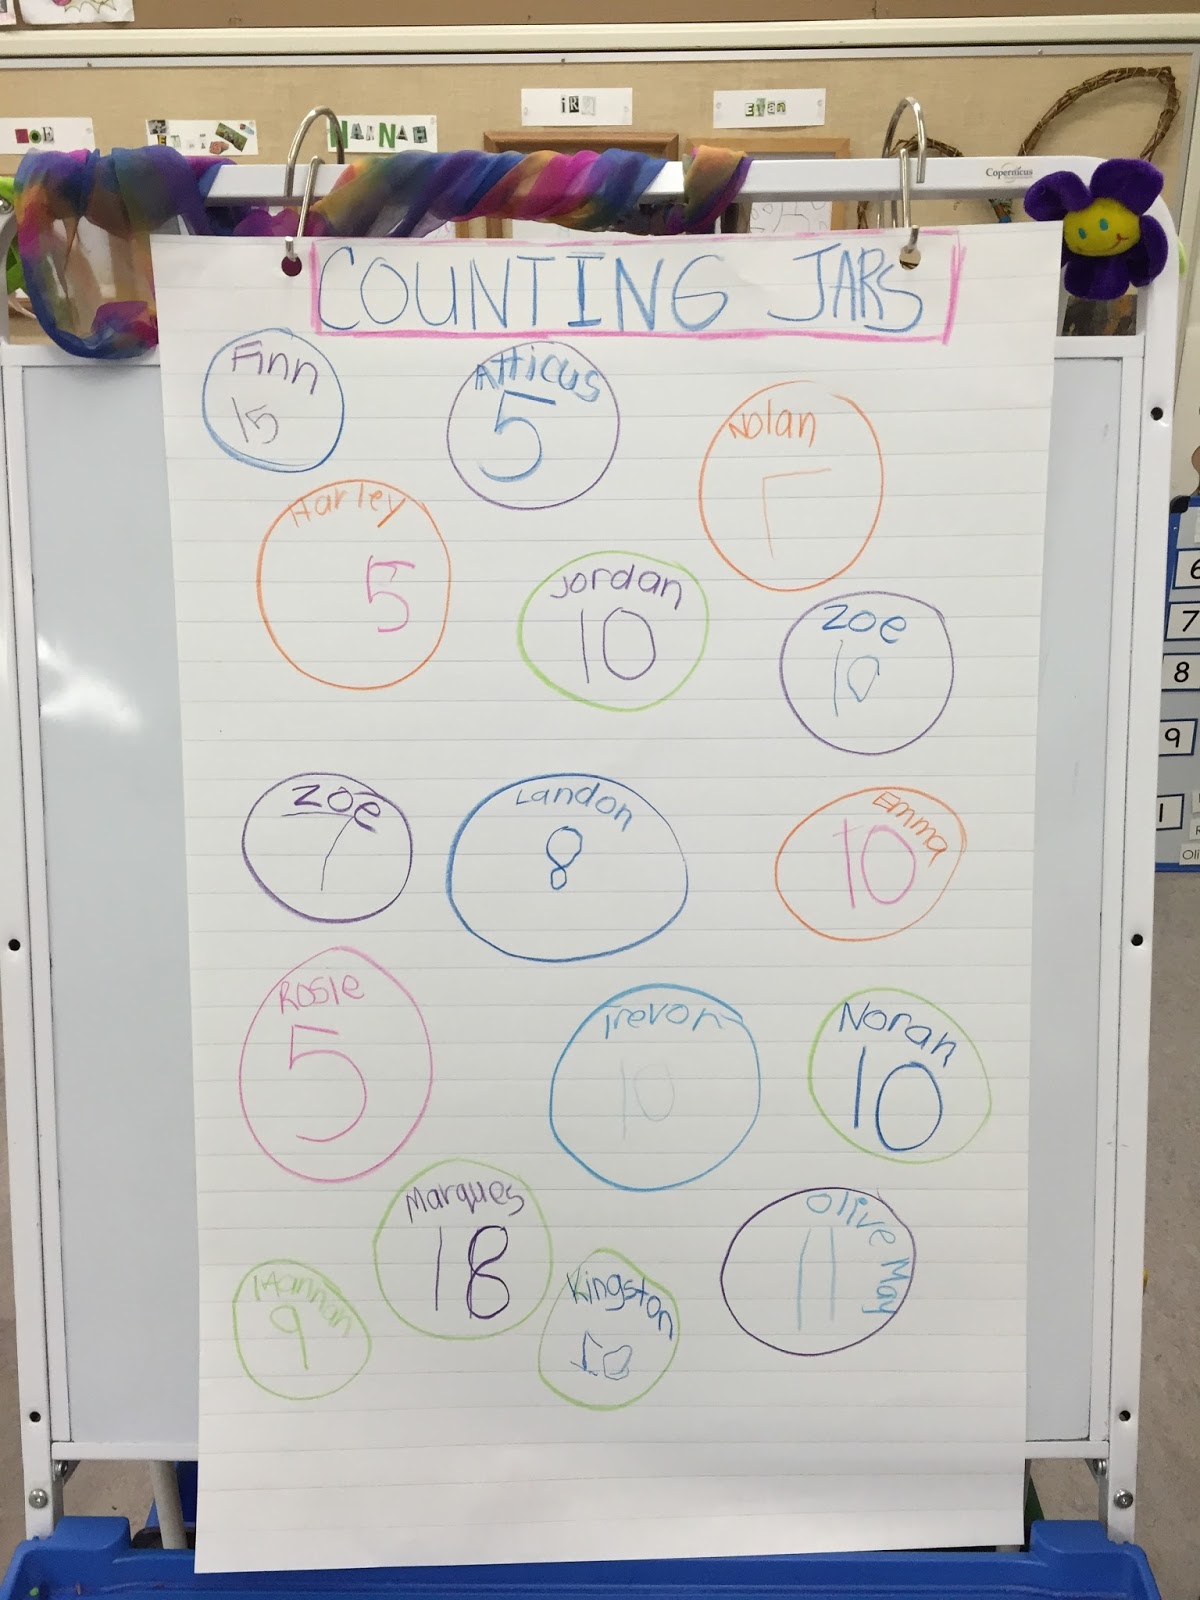 ZOE
HANNAH
Evan
Copernicus
COUNTING JARS
Finn
15
Atticus
5
Nolan
Harley
5
Jordan
10
Zoe
10
Zoe
7
Landon
8
Emma
10
Rosie
5
Trevon
10
Noran
10
Marques
18
Olive May
11
Hannah
9
Kingston
10
6
7
8
9
1
Oli